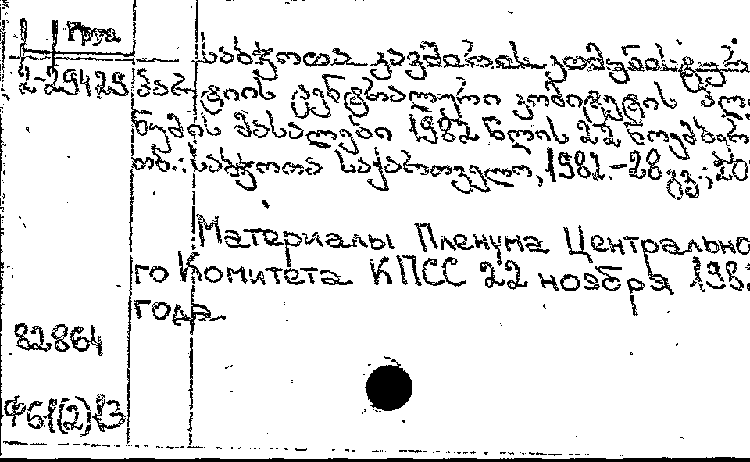 Груз
საბჭოთა კავშირის კომუნისტურ
2-29429 პარტიის ცენტრალური კომიტეტის პლე
ნუმის მასალები 1982 წლის 22 ნოემბერ
თბ.: საბჭოთა საქართველო, 1982.-28 გვ.; 20
Материалы Пленума Центрально
го Комитета КПСС 22 ноября 1982
года.
82864
Ф61(2)13